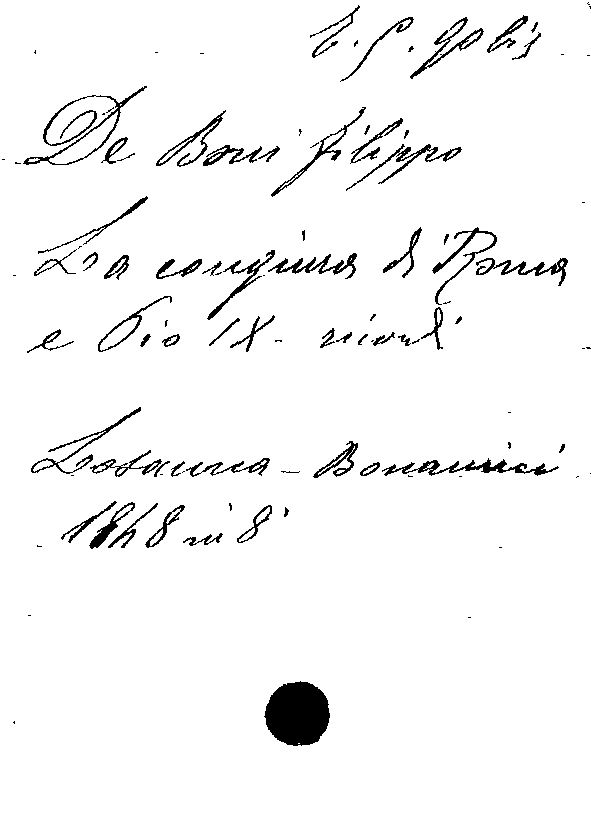 E. S. 90 bis
De Boni Filippo
La congiura di Roma
e Pio IX - ricordi
Losanna - Bonamici
1848 in 8°